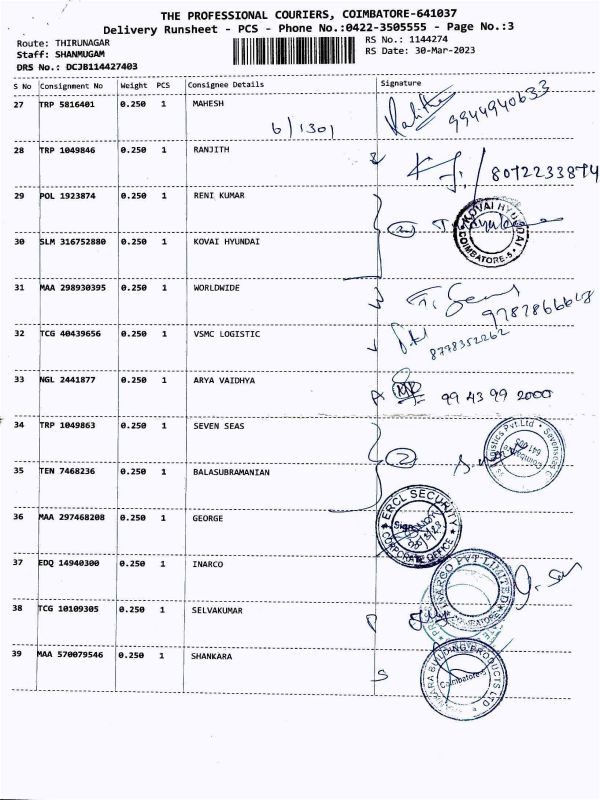 THE PROFESSIONAL COURIERS, COIMBATORE-641037
Delivery Runsheet - PCS - Phone No.:0422-3505555 - Page No.:3
Route: THIRUNAGAR RS No.: 1144274
Staff: SHANMUGAM RS Date: 30-Mar-2023
DRS No.: DCJB114427403
S No Consignment No Weight PCS Consignee Details Signature
27 TRP 5816401 0.250 1 MAHESH
6/1301 9944940633
28 TRP 1049846 0.250 1 RANJITH
8072233874
29 POL 1923874 0.250 1 RENI KUMAR
KOVAI HYUNDAI COIMBATORE-5
30 SLM 316752880 0.250 1 KOVAI HYUNDAI
31 MAA 298930395 0.250 1 WORLDWIDE
32 TCG 40439656 0.250 1 VSMC LOGISTIC
8778352262
33 NGL 2441877 0.250 1 ARYA VAIDHYA
99 43 99 2000
34 TRP 1049863 0.250 1 SEVEN SEAS
2
35 TEN 7468236 0.250 1 BALASUBRAMANIAN
36 MAA 297468208 0.250 1 GEORGE
ERCL SECURITY Sign CORPORATE OFFICE
37 EDQ 14940300 0.250 1 INARCO
INARCO PVT LIMITED COIMBATORE
38 TCG 10109305 0.250 1 SELVAKUMAR
39 MAA 570079546 0.250 1 SHANKARA
S
SHANKARA BUILDING PRODUCTS LTD Coimbatore-5